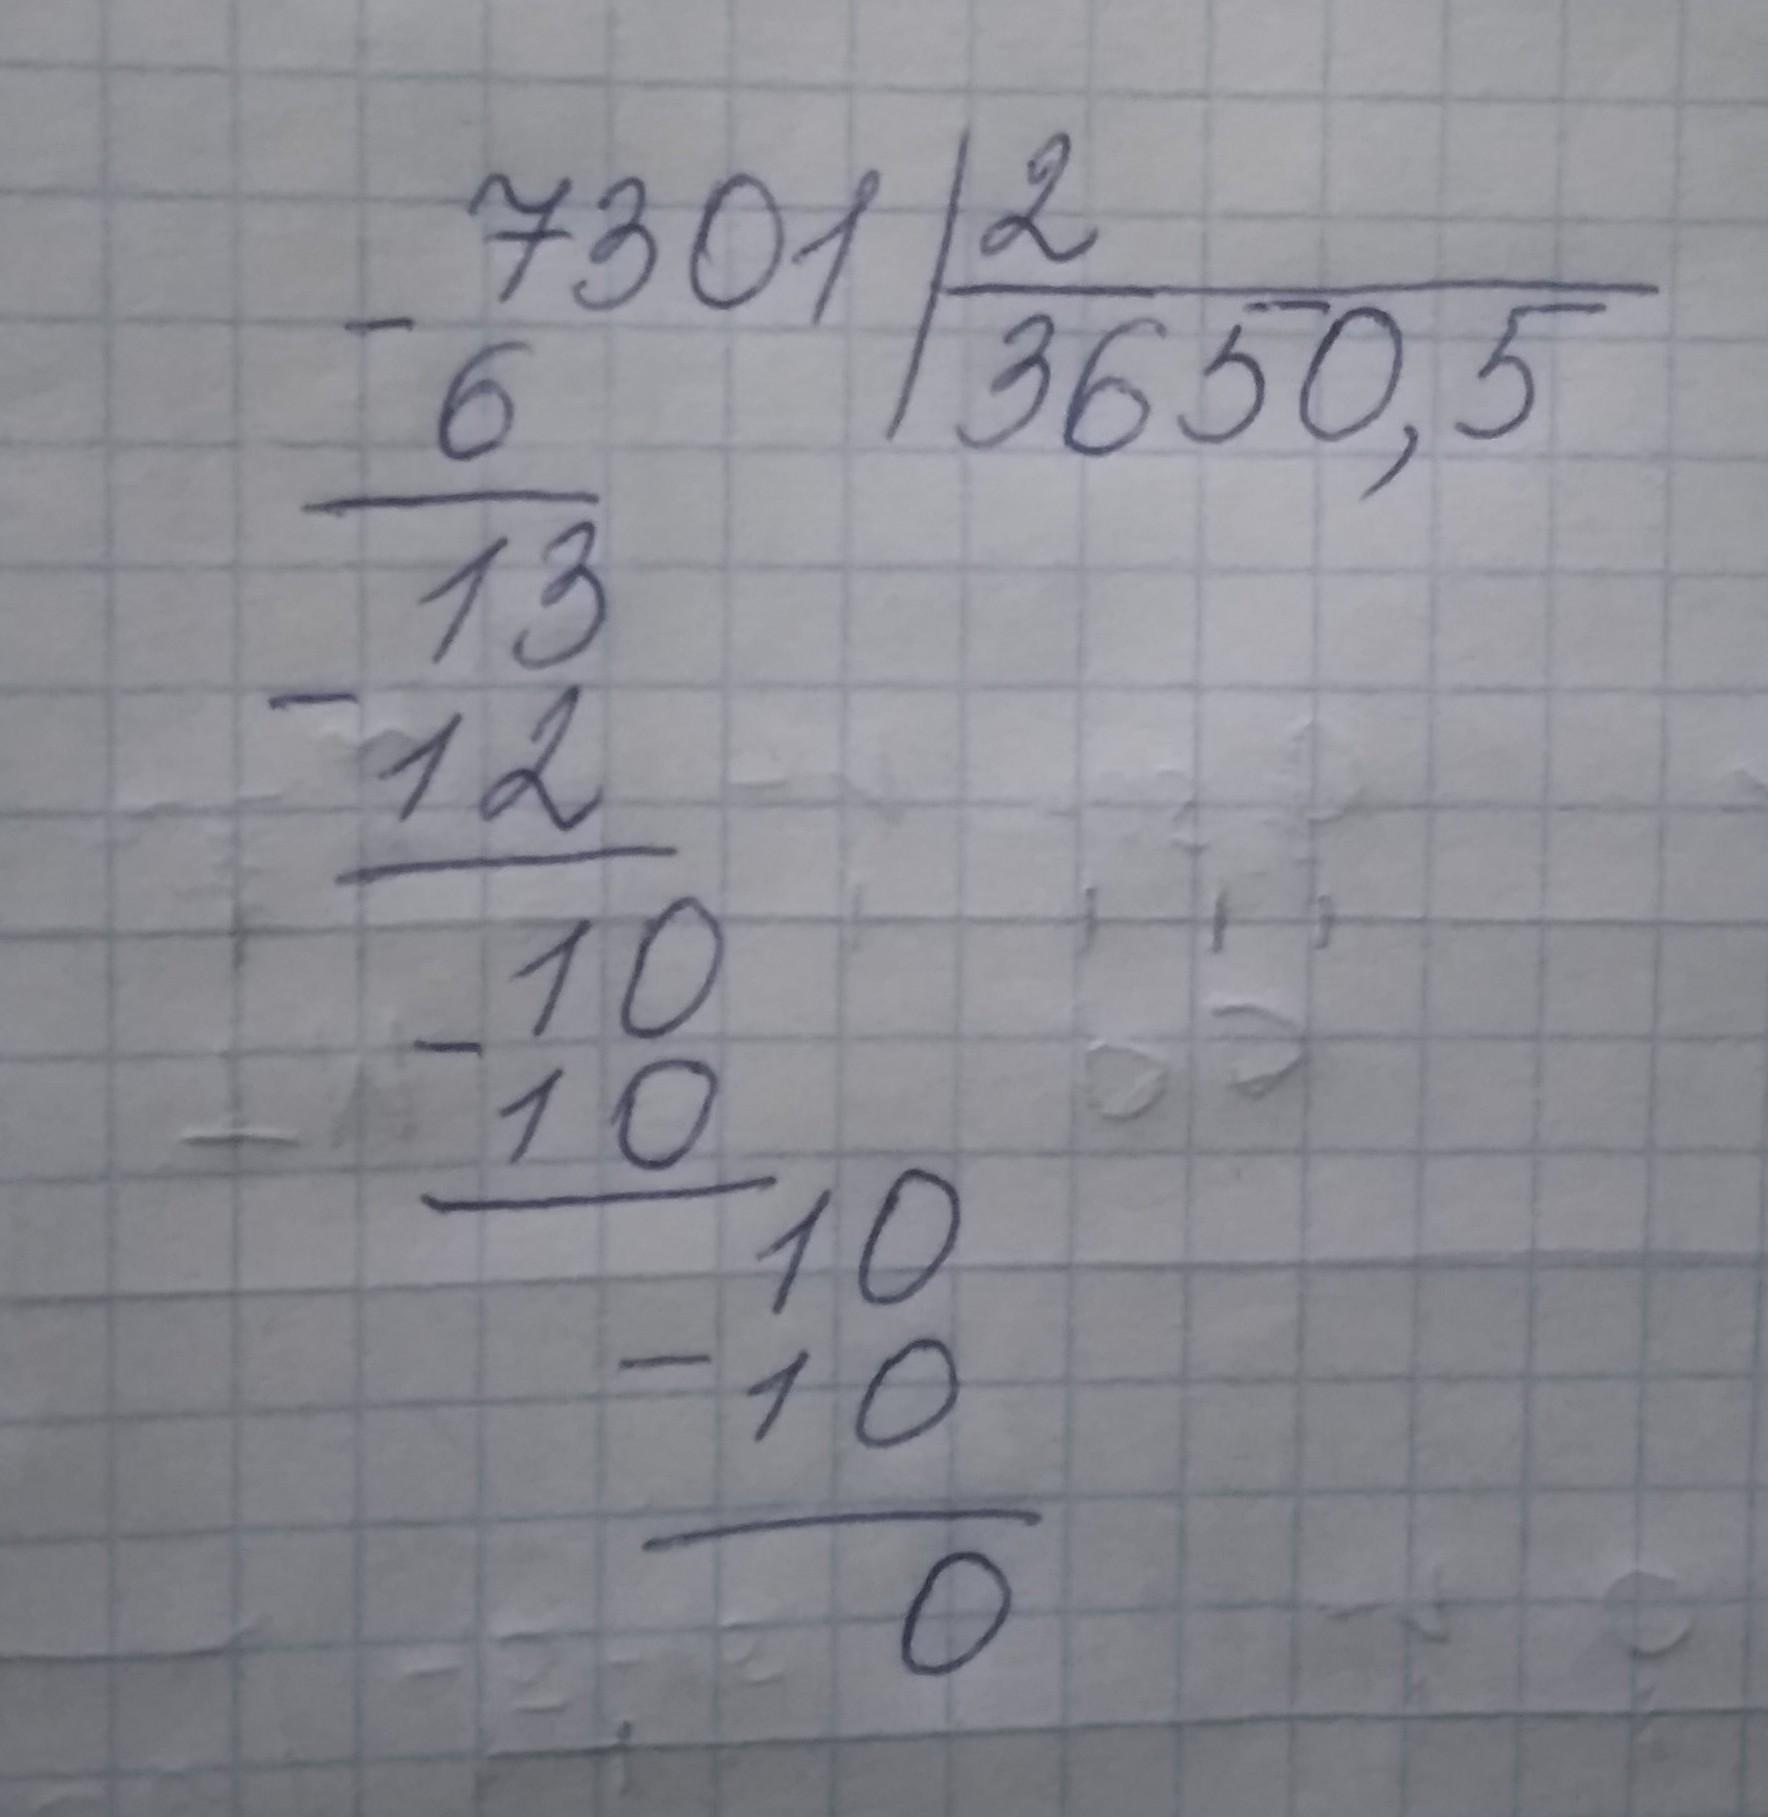 7301 2
- 3650,5
6
13
-
12
10
-
10
10
- 10
0